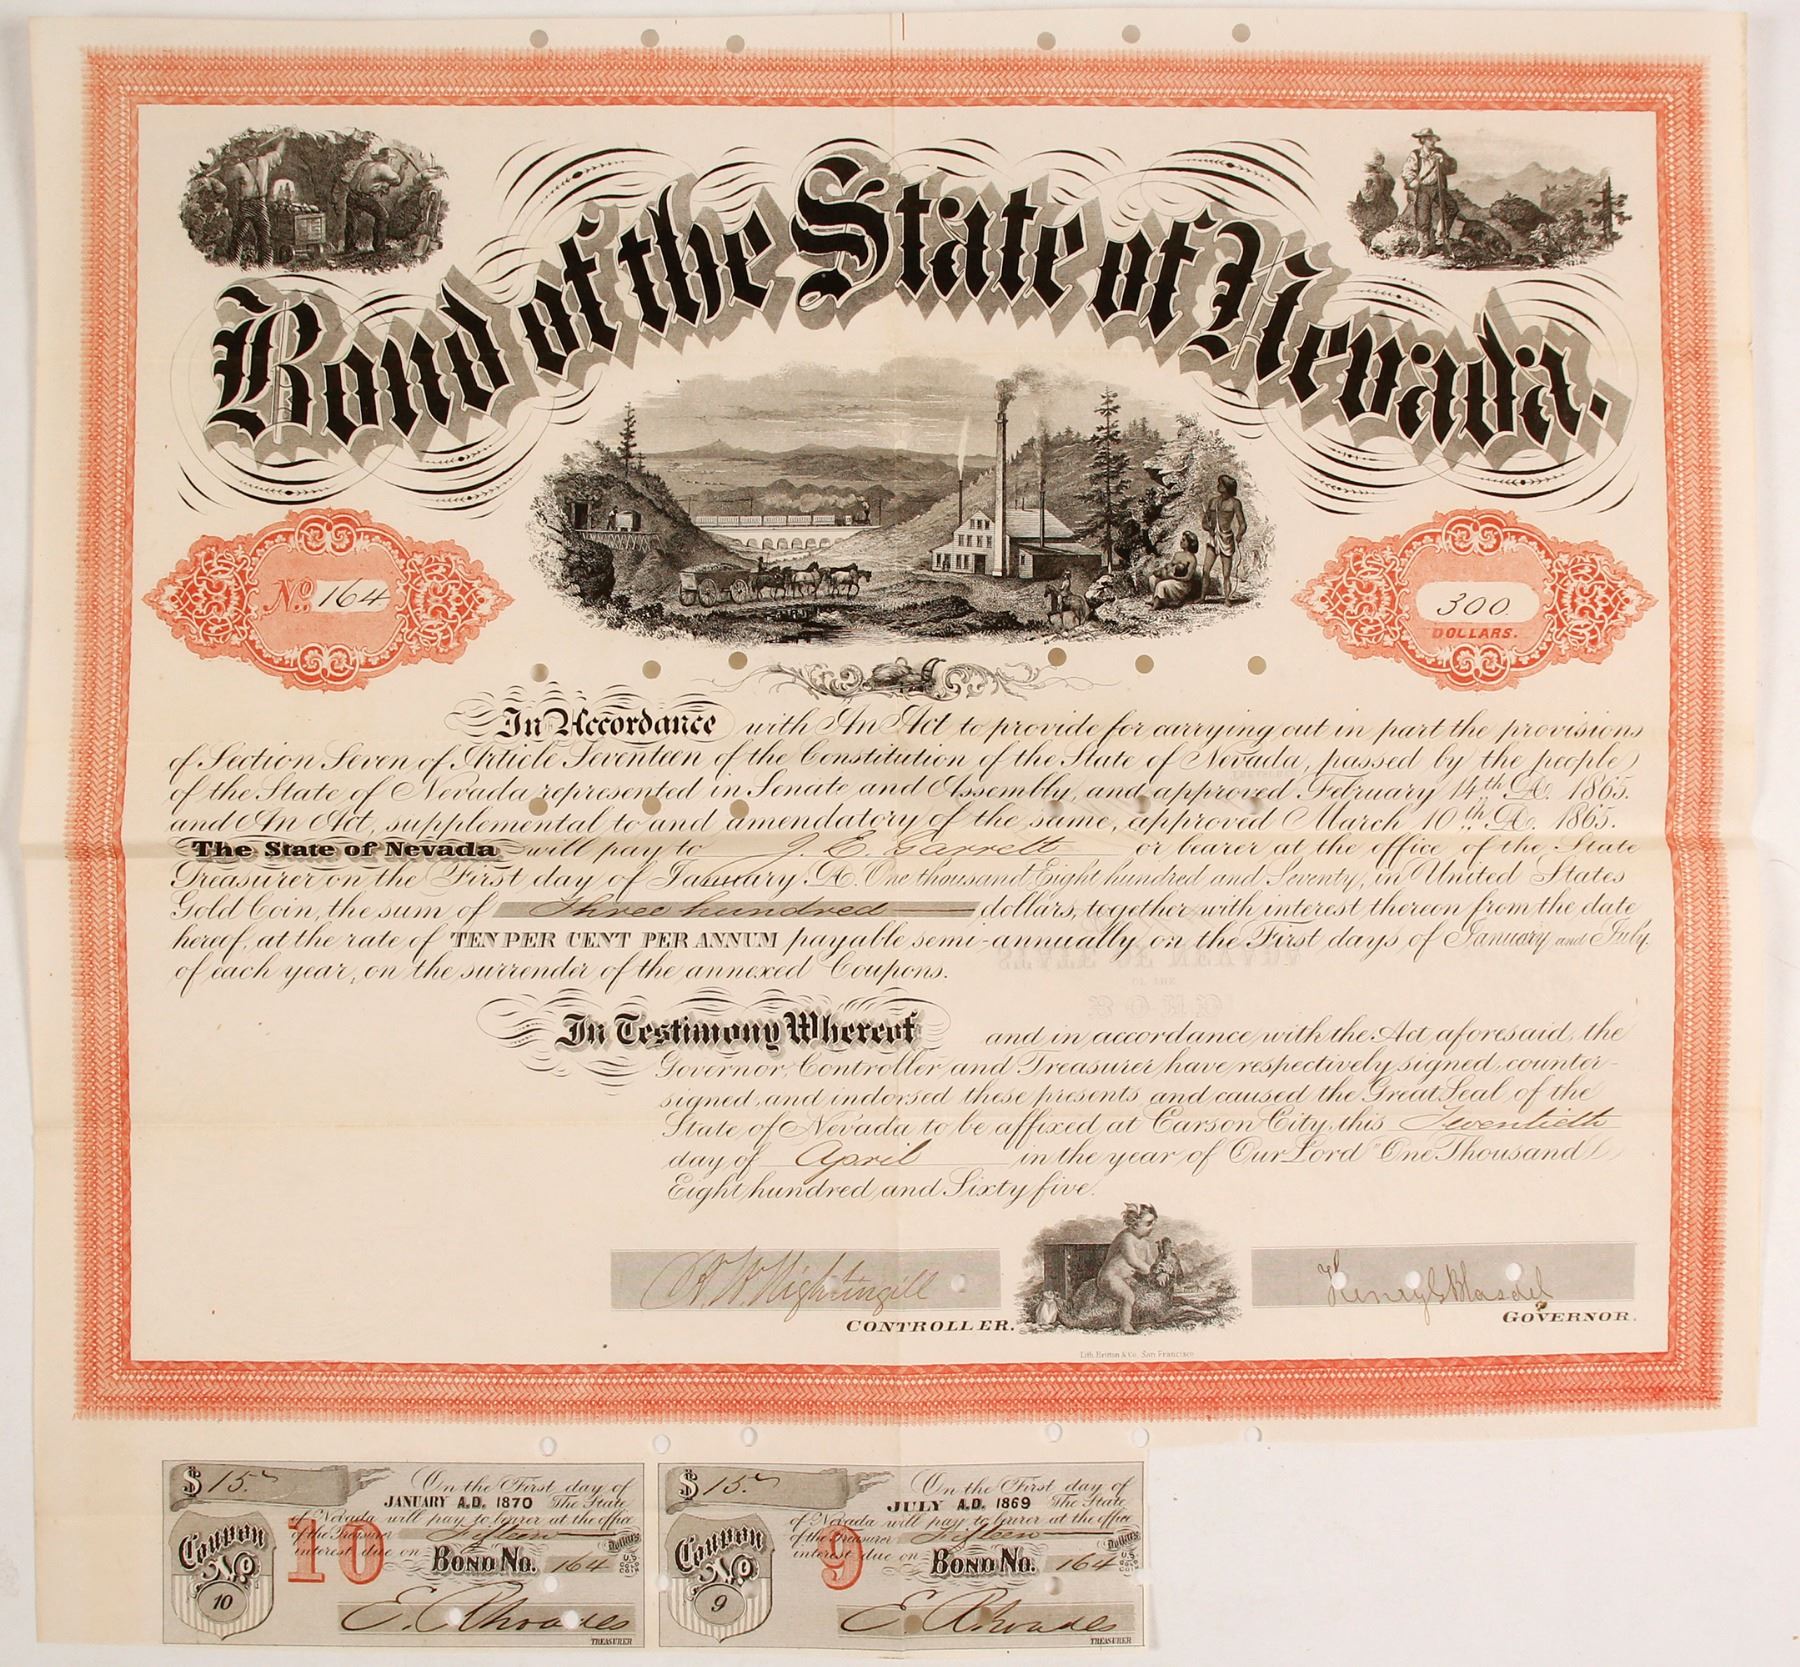 Bond of the State of Nevada.
No. 164
300
DOLLARS.
In Accordance with An Act to provide for carrying out in part the provisions
of Section Seven of Article Seventeen of the Constitution of the State of Nevada, passed by the people
of the State of Nevada represented in Senate and Assembly, and approved February 14th A.D. 1865.
and An Act, supplemental to and amendatory of the same, approved March 10th A.D. 1865.
The State of Nevada will pay to J. E. Garrett or bearer at the office of the State
Treasurer on the First day of January A.D. One thousand Eight hundred and Seventy, in United States
Gold Coin, the sum of Three hundred dollars, together with interest thereon from the date
hereof, at the rate of TEN PER CENT PER ANNUM payable semi-annually on the First days of January and July,
of each year, on the surrender of the annexed Coupons.
In Testimony Whereof and in accordance with the Act aforesaid, the
Governor, Controller and Treasurer have respectively signed, counter-
signed, and indorsed these presents and caused the Great Seal of the
State of Nevada to be affixed at Carson City, this Twentieth
day of April in the year of Our Lord One Thousand
Eight hundred and Sixty five.
A. W. Nightingill
CONTROLLER.
Henry G Blasdel
GOVERNOR.
Lith. Britton & Co. San Francisco
$ 15.
On the First day of
JANUARY A.D. 1870 The State
of Nevada will pay to bearer at the office
of the Treasurer Fifteen Dollars
interest due on BOND No. 164 U.S. GOLD COIN
Coupon No 10
10
E. Rhoades
TREASURER
$ 15.
On the First day of
JULY A.D. 1869 The State
of Nevada will pay to bearer at the office
of the Treasurer Fifteen Dollars
interest due on BOND No. 164 U.S. GOLD COIN
Coupon No 9
9
E. Rhoades
TREASURER